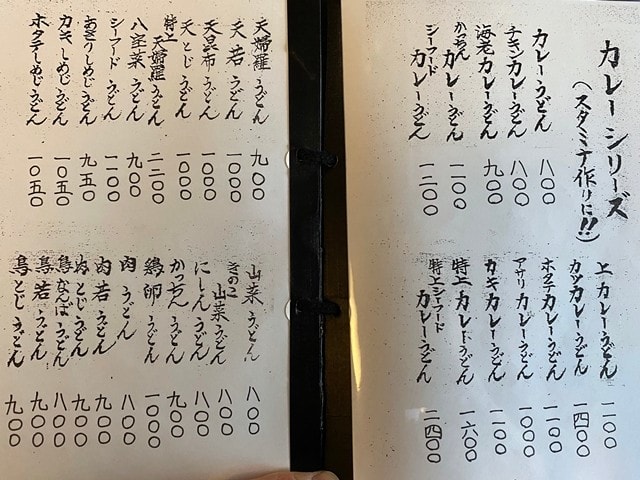 カレーシリーズ
(スタミナ作りに!!)
カレーうどん 八〇〇
チキンカレーうどん 八〇〇
海老カレーうどん 九〇〇
かっちんカレーうどん 一一〇〇
シーフードカレーうどん 一二〇〇
上カレーうどん 一一〇〇
カツカレーうどん 一四〇〇
ホタテカレーうどん 一一〇〇
アサリカレーうどん 一〇〇〇
カキカレーうどん 一一〇〇
特上カレーうどん 一六〇〇
特上シーフードカレーうどん 二四〇〇
天婦羅うどん 九〇〇
天若うどん 一〇〇〇
天昆布うどん 一〇〇〇
天とじうどん 一〇〇〇
特上天婦羅うどん 二二〇〇
八宝菜うどん 九〇〇
シーフードうどん 一一〇〇
あさりしめじうどん 九五〇
カキしめじうどん 一〇五〇
ホタテしめじうどん 一〇五〇
山菜うどん 八〇〇
きのこ山菜うどん 八〇〇
にしんうどん 八〇〇
かっちんうどん 九〇〇
鶏卵うどん 一〇〇〇
肉うどん 八〇〇
肉若うどん 九〇〇
肉とじうどん 九〇〇
鳥なんばうどん 八〇〇
鳥若うどん 九〇〇
鳥とじうどん 九〇〇